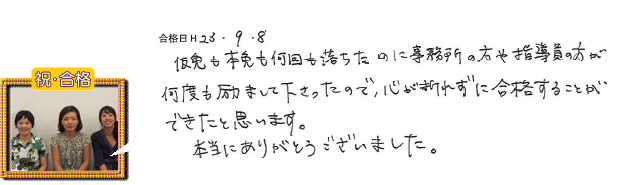 合格日H23・9・8
仮免も本免も何回も落ちたのに事務所の方や指導員の方が
何度も励まして下さったので、心が折れずに合格することが
できたと思います。
本当にありがとうございました。
祝・合格